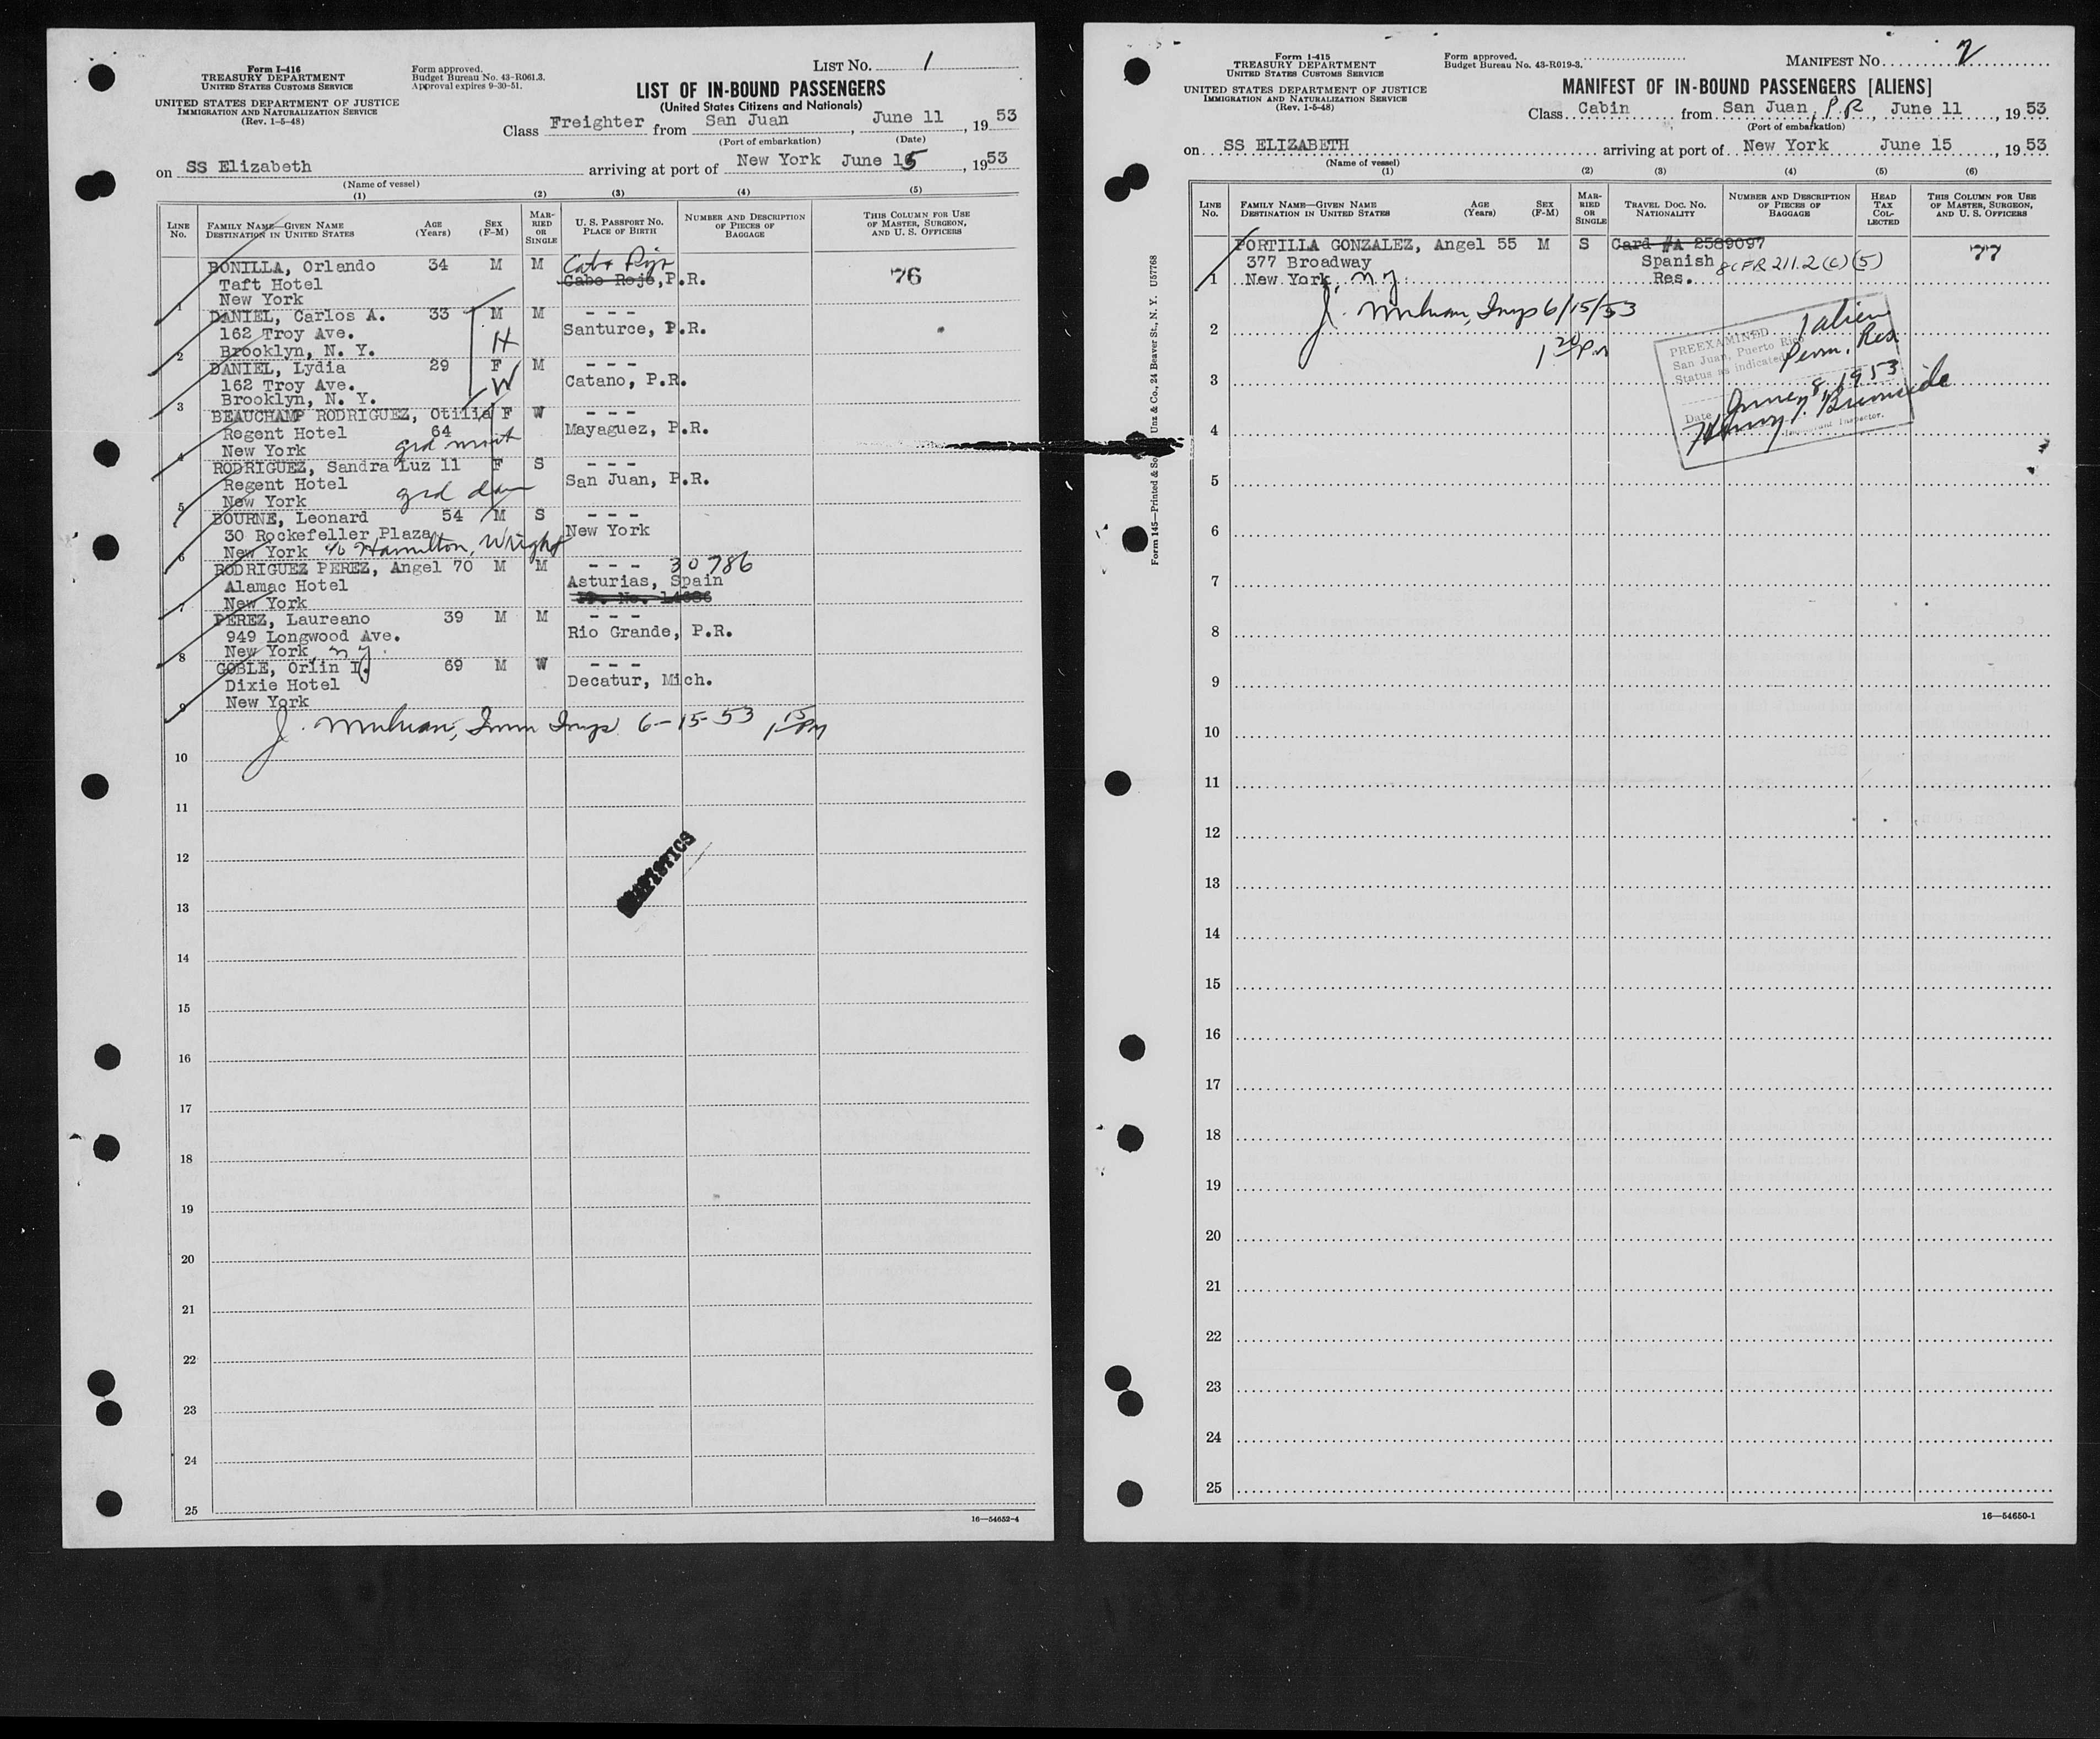 Form I-416
TREASURY DEPARTMENT
UNITED STATES CUSTOMS SERVICE
UNITED STATES DEPARTMENT OF JUSTICE
IMMIGRATION AND NATURALIZATION SERVICE
(Rev. 1-5-48)
Form approved.
Budget Bureau No. 43-R061.3.
Approval expires 9-30-51.
LIST NO. 1
LIST OF IN-BOUND PASSENGERS
(United States Citizens and Nationals)
Class Freighter from San Juan, June 11, 1953
(Port of embarkation) (Date)
on SS Elizabeth arriving at port of New York June 15, 1953
(Name of vessel)
(1) (2) (3) (4) (5)
LINE NO.
FAMILY NAME—GIVEN NAME
DESTINATION IN UNITED STATES
AGE (Years)
SEX (F-M)
MARRIED OR SINGLE
U. S. PASSPORT NO.
PLACE OF BIRTH
NUMBER AND DESCRIPTION OF PIECES OF BAGGAGE
THIS COLUMN FOR USE OF MASTER, SURGEON, AND U. S. OFFICERS
BONILLA, Orlando 34 M M Cabo Rojo
Taft Hotel Cabo Rojo, P.R. 76
1 New York
DANIEL, Carlos A. 33 M M - - -
162 Troy Ave. H Santurce, P.R.
2 Brooklyn, N. Y.
DANIEL, Lydia 29 F M - - -
162 Troy Ave. W Catano, P.R.
3 Brooklyn, N. Y.
BEAUCHAMP RODRIGUEZ, Otilia F W - - -
Regent Hotel 64 Mayaguez, P.R.
4 New York
RODRIGUEZ, Sandra Luz 11 F S - - -
Regent Hotel San Juan, P.R.
5 New York grd dau
BOURNE, Leonard 54 M S - - -
30 Rockefeller Plaza New York
6 New York c/o Hamilton, Wright
RODRIGUEZ PEREZ, Angel 70 M M - - - 30786
Alamac Hotel Asturias, Spain
7 New York PP. No.
PEREZ, Laureano 39 M M - - -
949 Longwood Ave. Rio Grande, P.R.
8 New York, N.Y.
GOBLE, Orlin I. 69 M W - - -
Dixie Hotel Decatur, Mich.
9 New York
J. Imm Insp. 6-15-53 1 15 PM
10
11
12
STATISTICS
13
14
15
16
17
18
19
20
21
22
23
24
25
16—54652-4
Form I-415
TREASURY DEPARTMENT
UNITED STATES CUSTOMS SERVICE
UNITED STATES DEPARTMENT OF JUSTICE
IMMIGRATION AND NATURALIZATION SERVICE
(Rev. 1-5-48)
Form approved.
Budget Bureau No. 43-R019-3.
MANIFEST NO. 2
MANIFEST OF IN-BOUND PASSENGERS [ALIENS]
Class Cabin from San Juan, P R, June 11, 1953
(Port of embarkation)
on SS ELIZABETH arriving at port of New York June 15, 1953
(Name of vessel)
(1) (2) (3) (4) (5) (6)
LINE NO.
FAMILY NAME—GIVEN NAME
DESTINATION IN UNITED STATES
AGE (Years)
SEX (F-M)
MARRIED OR SINGLE
TRAVEL DOC. NO.
NATIONALITY
NUMBER AND DESCRIPTION OF PIECES OF BAGGAGE
HEAD TAX COLLECTED
THIS COLUMN FOR USE OF MASTER, SURGEON, AND U. S. OFFICERS
PORTILLA GONZALEZ, Angel 55 M S Card #A 2589097 77
377 Broadway Spanish 8CFR 211.2(c)(5)
1 New York, N.Y. Res.
J. Insp 6/15/53
1 20 Pm
PREEXAMINED
San Juan, Puerto Rico
Status as indicated
1 alien
Perm. Res
Date June 8, 1953
Henry
Immigrant Inspector.
2
3
4
5
6
7
8
9
10
11
12
13
14
15
16
17
18
19
20
21
22
23
24
25
16—54650-1
Form 145—Printed & So Unz & Co., 24 Beaver St., N. Y. U57768